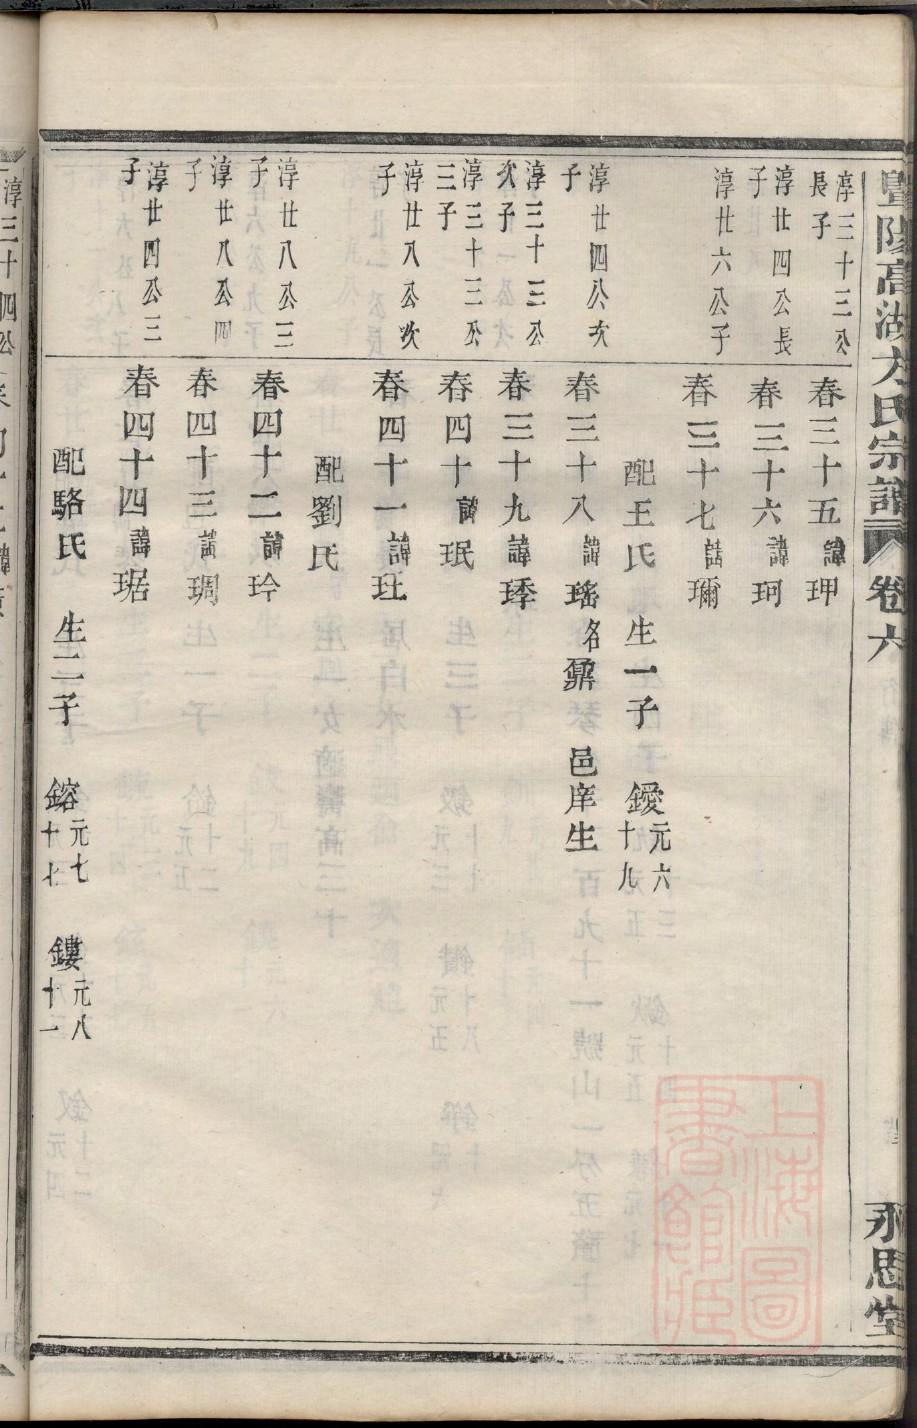 暨陽高湖方氏宗譜 卷六 永思堂
淳三十三公長子 春三十五 諱玾
淳廿四公長子 春三十六 諱珂
淳廿六公子 春三十七 諱瓓
配王氏 生一子 鑀 元六 十九
淳廿四公次子 春三十八 諱瑤 名鼐 邑庠生
淳三十三公次子 春三十九 諱琗
淳三十三公三子 春四十 諱珉
淳廿八公次子 春四十一 諱玨
配劉氏
淳廿八公三子 春四十二 諱玲
淳廿八公四子 春四十三 諱琱
淳廿四公三子 春四十四 諱琚
配駱氏 生二子 鎔 元七 十七 鏤 元八 十一
上海圖書館藏